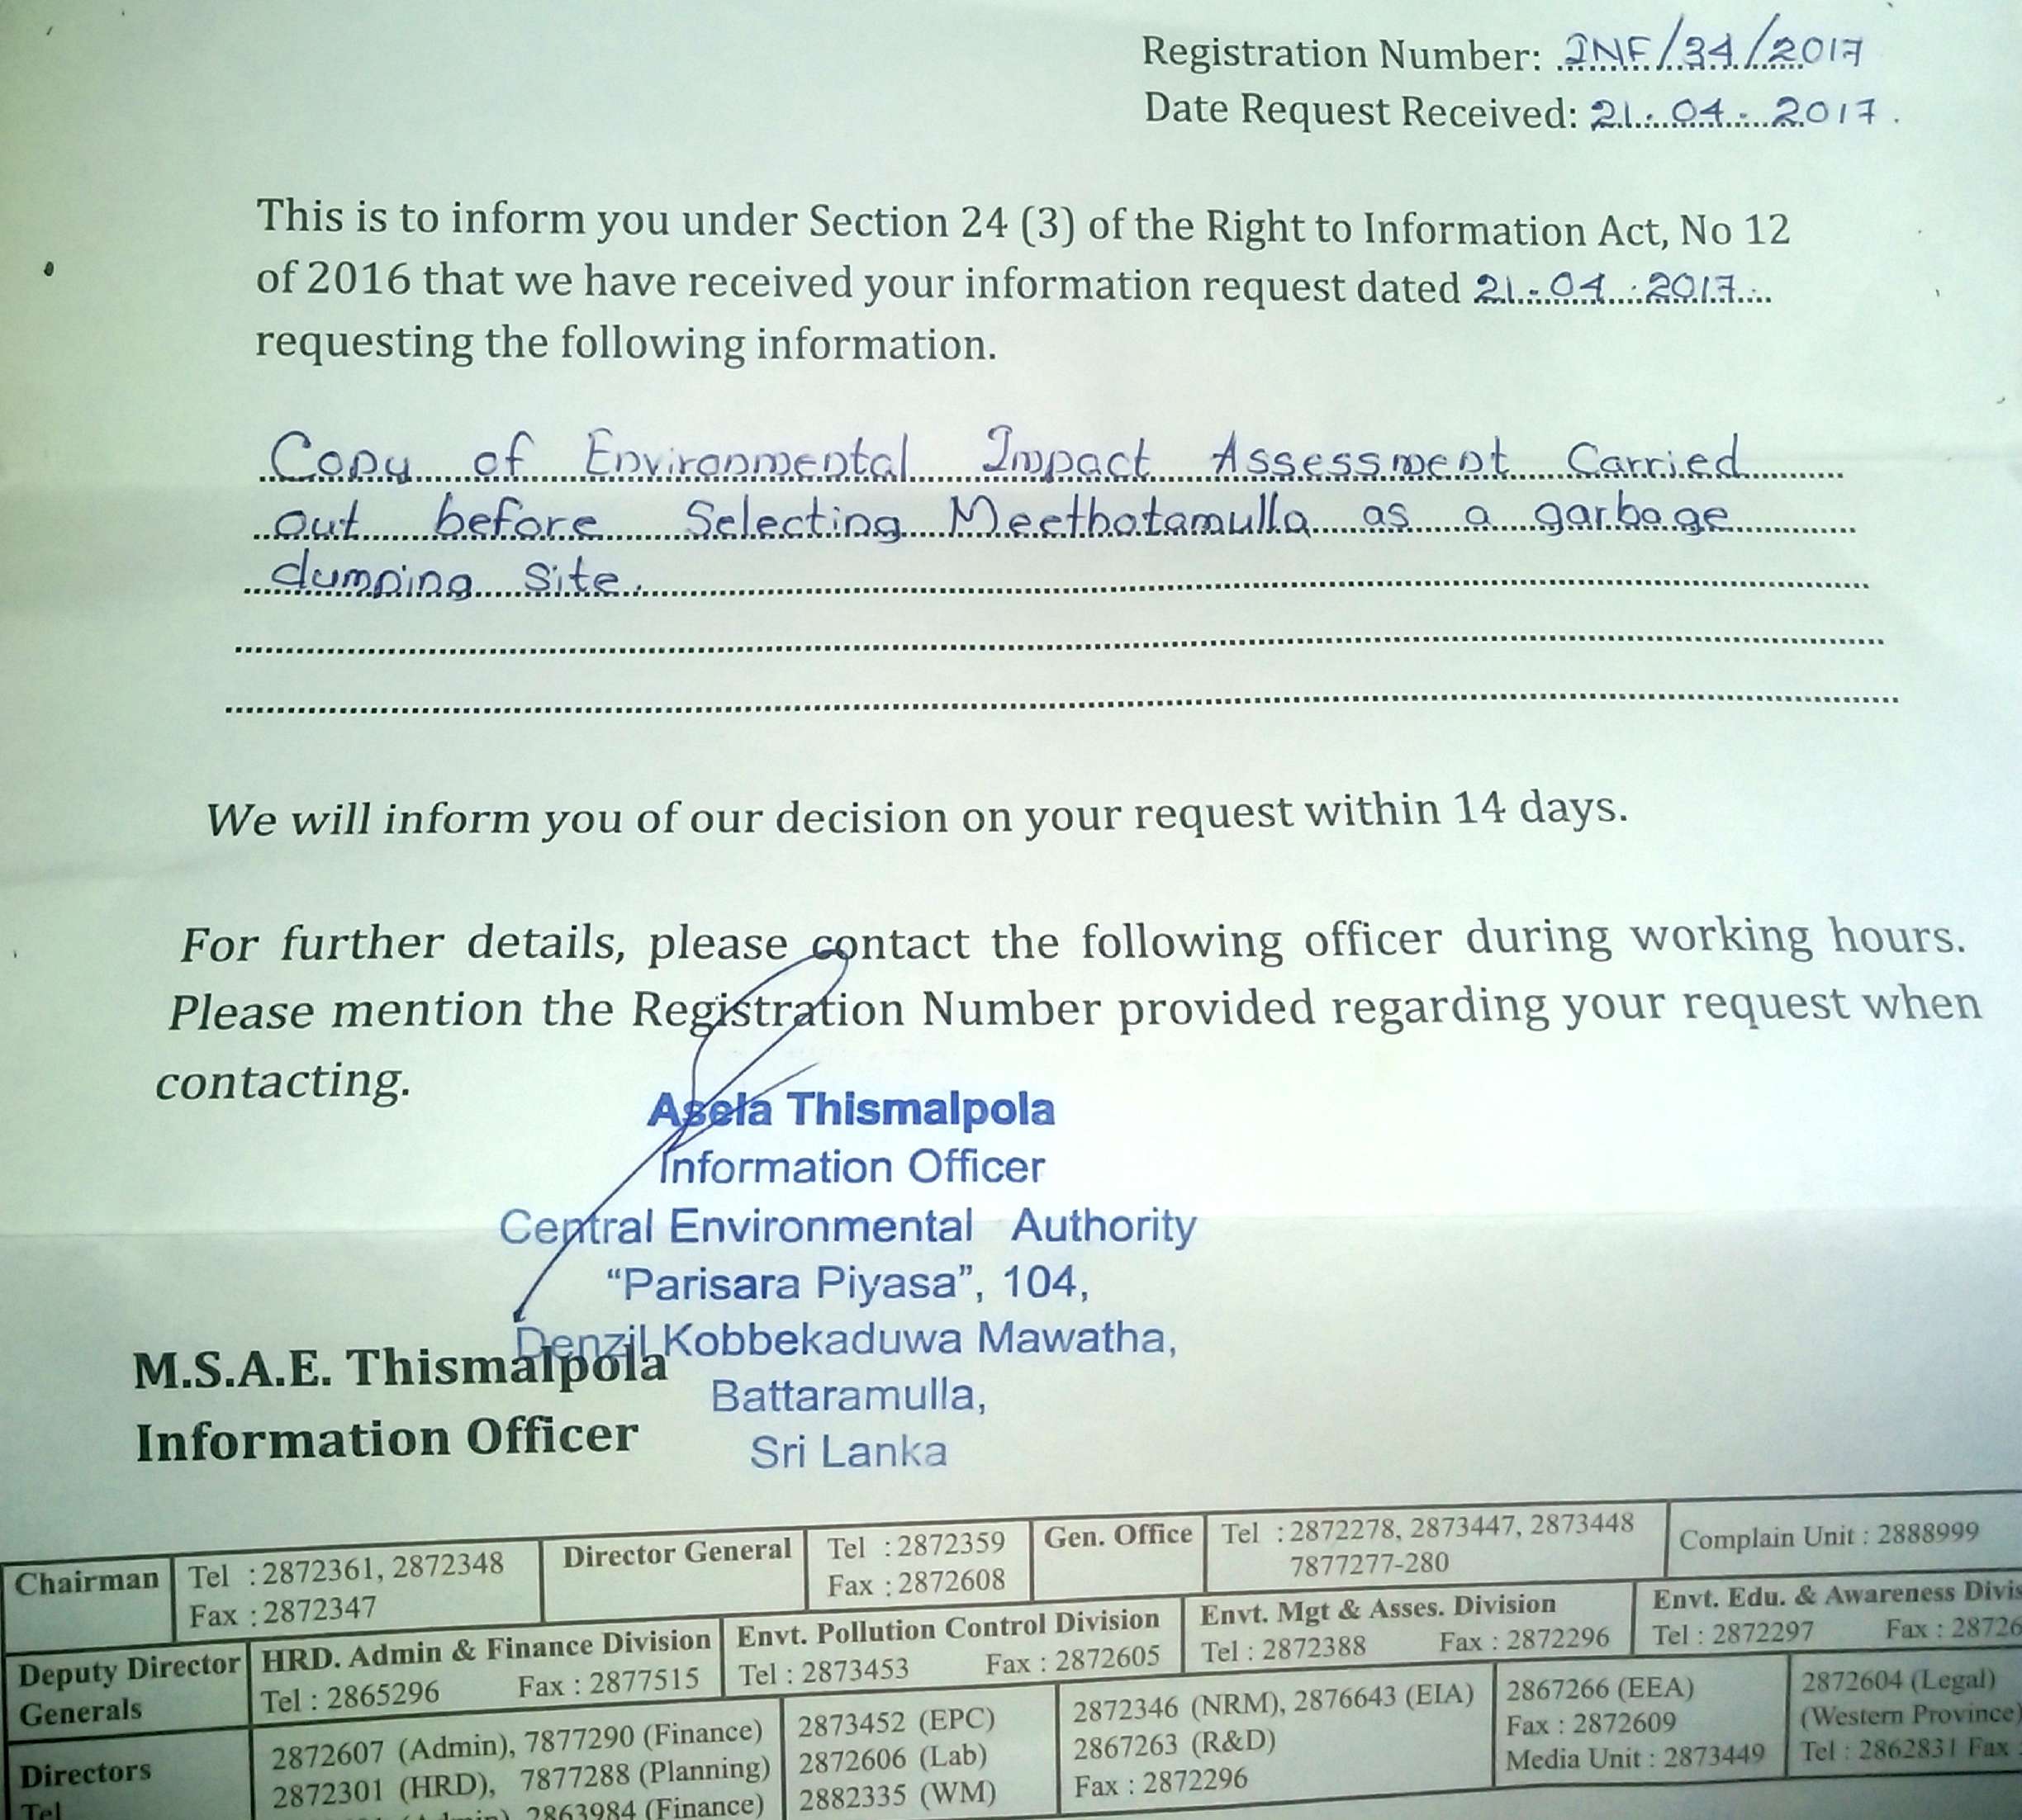 Registration Number: INF/34/2017
Date Request Received: 21.04.2017.
This is to inform you under Section 24 (3) of the Right to Information Act, No 12
of 2016 that we have received your information request dated 21.04.2017
requesting the following information.
Copy of Environmental Impact Assessment Carried
out before Selecting Meethotamulla as a garbage
dumping Site.
We will inform you of our decision on your request within 14 days.
For further details, please contact the following officer during working hours.
Please mention the Registration Number provided regarding your request when
contacting.
Asela Thismalpola
Information Officer
Central Environmental Authority
“Parisara Piyasa”, 104,
Denzil Kobbekaduwa Mawatha,
Battaramulla,
Sri Lanka
M.S.A.E. Thismalpola
Information Officer
Chairman Tel : 2872361, 2872348 Director General Tel : 2872359 Gen. Office Tel : 2872278, 2873447, 2873448 Complain Unit : 2888999
Fax : 2872347 Fax : 2872608 7877277-280
Deputy Director Generals HRD. Admin & Finance Division Envt. Pollution Control Division Envt. Mgt & Asses. Division Envt. Edu. & Awareness Divis
Tel : 2865296 Fax : 2877515 Tel : 2873453 Fax : 2872605 Tel : 2872388 Fax : 2872296 Tel : 2872297 Fax : 28726
Directors 2872607 (Admin), 7877290 (Finance) 2873452 (EPC) 2872346 (NRM), 2876643 (EIA) 2867266 (EEA) 2872604 (Legal)
2872301 (HRD), 7877288 (Planning) 2872606 (Lab) 2867263 (R&D) Fax : 2872609 (Western Province)
Tel 2863984 (Finance) 2882335 (WM) Fax : 2872296 Media Unit : 2873449 Tel : 2862831 Fax